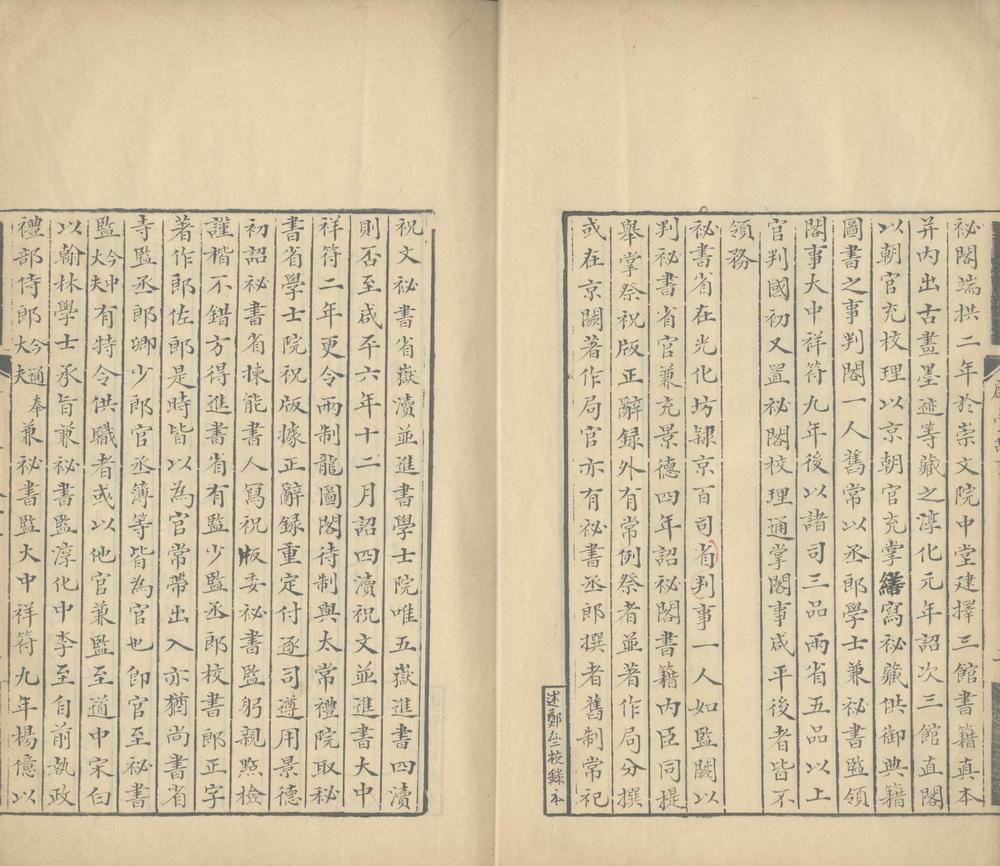 秘閣端拱二年於崇文院中堂建擇三館書籍真本
并内出古畫墨迹等藏之淳化元年詔次三館直閣
以朝官充校理以京朝官充掌繕寫秘藏供御典籍
圖書之事判閣一人舊常以丞郎學士兼秘書監領
閣事大中祥符九年後以諸司三品兩省五品以上
官判國初又置祕閣校理通掌閣事咸平後者皆不
領務
祕書省在光化坊隸京百司省判事一人如監闕以
判祕書省官兼充景德四年詔祕閣書籍内臣同提
舉掌祭祝版正辭録外有常例祭者並著作局分撰
或在京闕著作局官亦有祕書丞郎撰者舊制常祀
述鄭垒校錄本
祝文祕書省嶽瀆並進書學士院唯五嶽進書四瀆
則否至咸平六年十二月詔四瀆祝文並進書大中
祥符二年更令兩制龍圖閣待制與太常禮院取祕
書省學士院祝版據正辭録重定付逐司遵用景德
初詔祕書省揀能書人寫祝版委祕書監躬親點檢
謹楷不錯方得進書省有監少監丞郎校書郎正字
著作郎佐郎是時皆以為官常帶出入亦猶尚書省
寺監丞郎卿少郎官丞簿等皆為官也即官至祕書
監今中大夫有特令供職者或以他官兼監至道中宋白
以翰林學士承旨兼祕書監淳化中李至自前執政
禮部侍郎今通奉大夫兼祕書監大中祥符九年楊億以